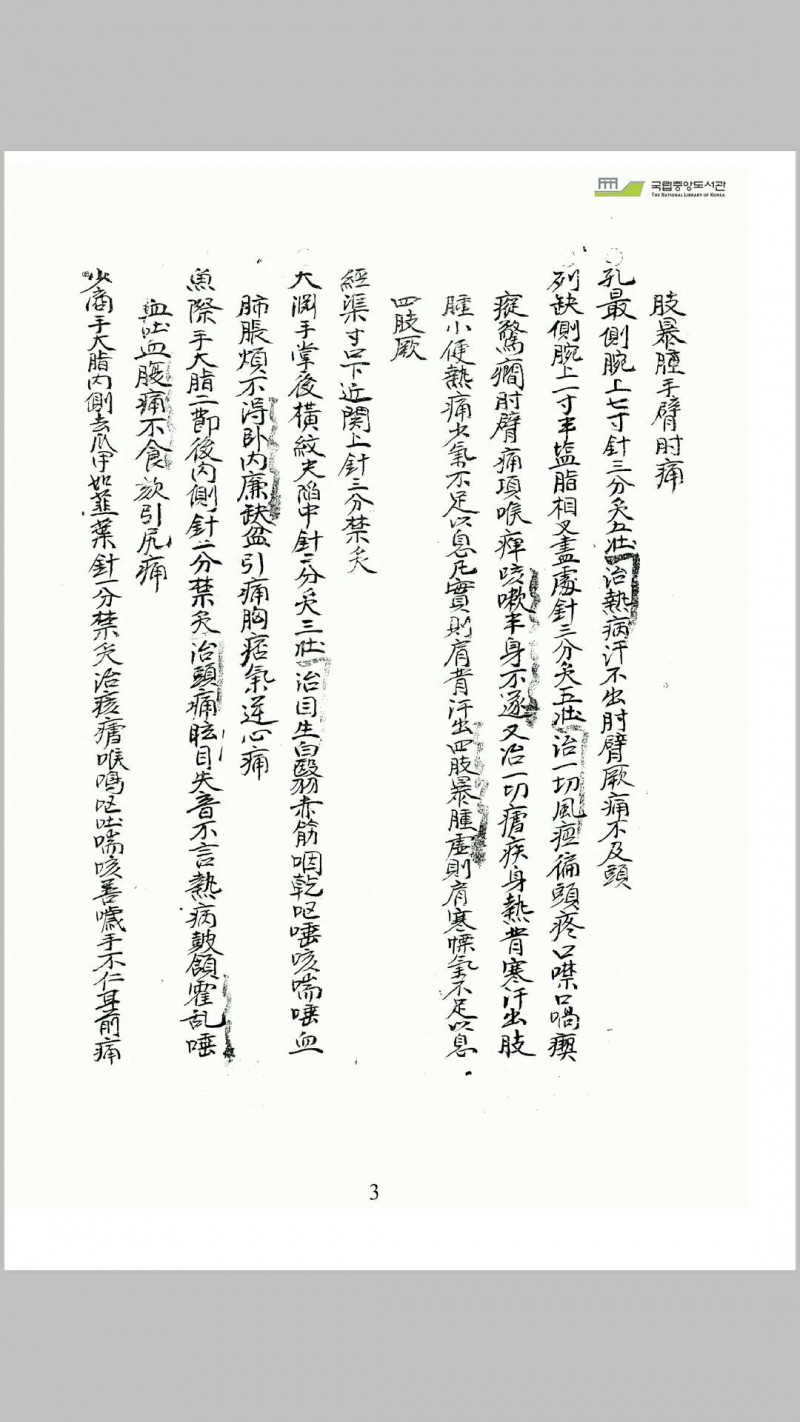 국립중앙도서관
THE NATIONAL LIBRARY OF KOREA
肢暴腫手臂肘痛
孔最側腕上七寸針三分灸五壯治熱病汗不出肘臂厥痛不及頭
列缺側腕上一寸半塩脂相叉盡處針三分灸五壯治一切風疸偏頭疼口噤口喎瘈
瘲驚癇肘臂痛項喉痺咳嗽半身不遂又治一切瘧疾身熱背寒汗出肢
腫小便熱痛少氣不足以息凡實則肩背汗出四肢暴腫虛則肩寒慄氣不足以息
四肢厥
經渠寸口下近関上針三分禁灸
大渊手掌後橫紋尖陷中針二分灸三壯治目生白翳赤筋咽乾嘔唾咳喘唾血
肺脹煩不得卧內廉缺盆引痛胸痞氣逆心痛
魚際手大脂二節後內側針二分禁灸治頭痛眩目失音不言熱病皷頷霍乱唾
血吐血腹痛不食欬引尻痛
少商手大脂內側去爪甲如韮葉針一分禁灸治痎瘧喉鳴嘔吐喘咳善噦手不仁耳前痛
3